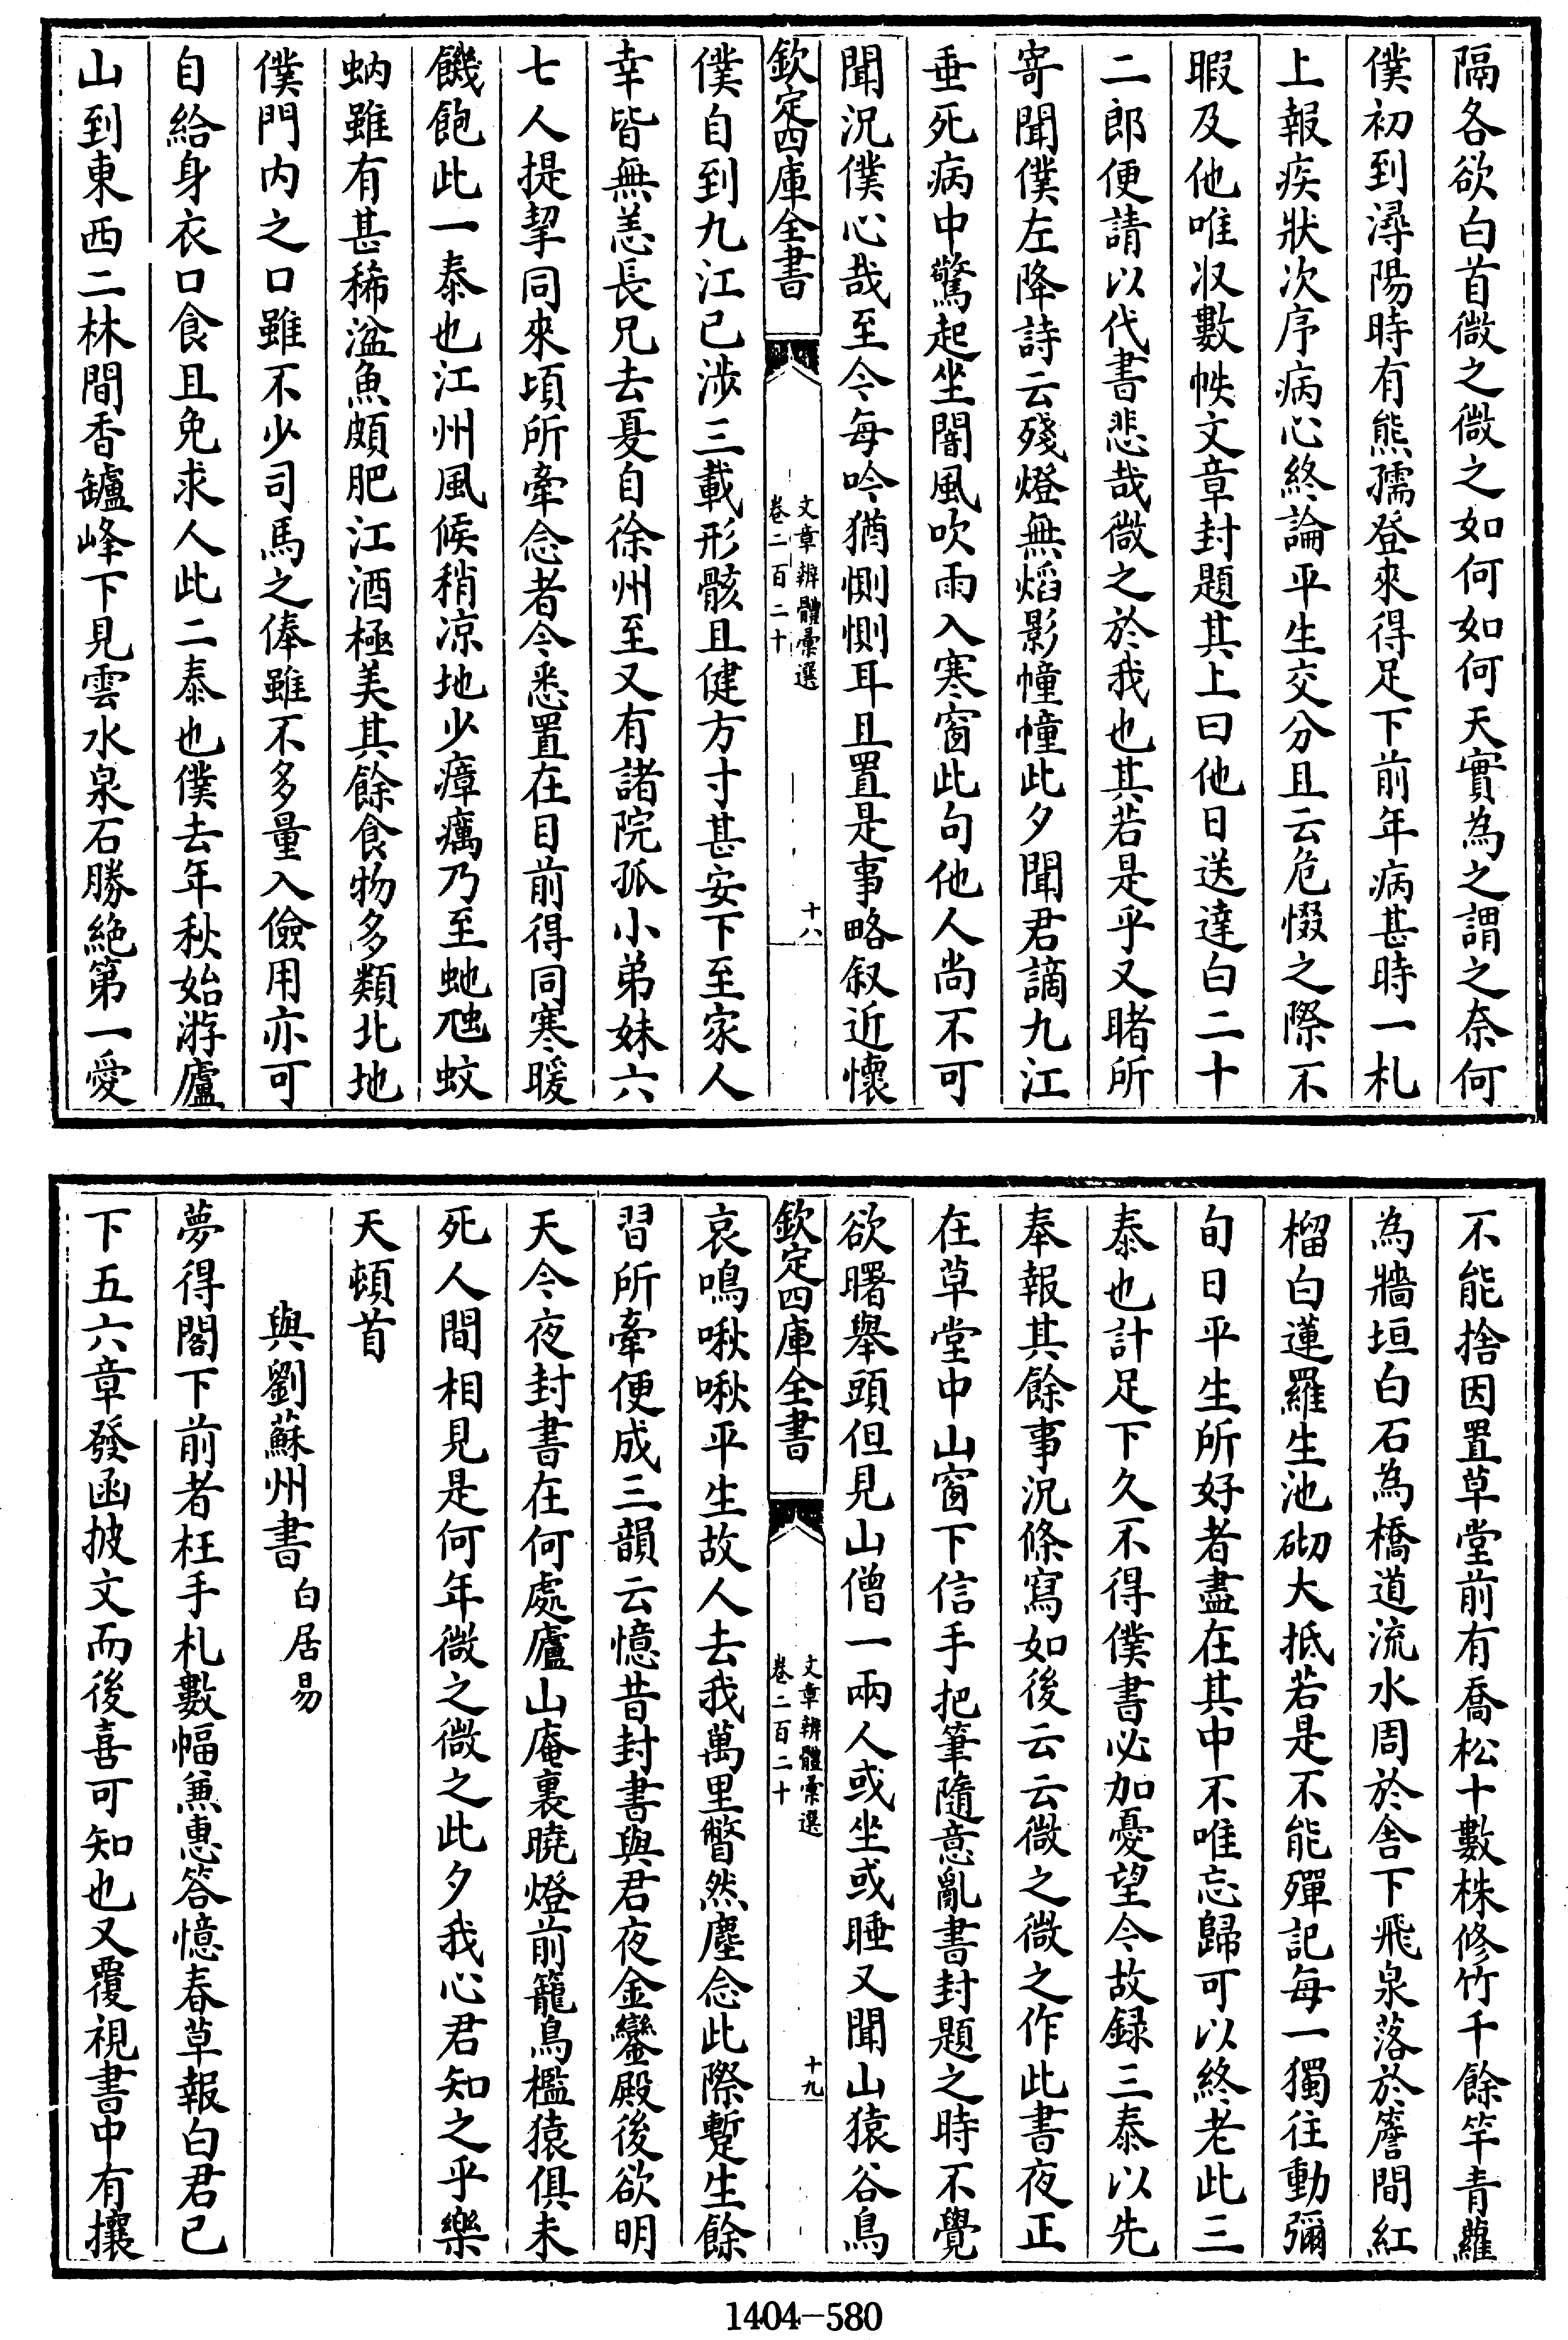 隔各欲白首微之微之如何如何天實為之謂之奈何
僕初到潯陽時有熊孺登來得足下前年病甚時一札
上報疾狀次序病心終論平生交分且云危惙之際不
暇及他唯収數帙文章封題其上曰他日送達白二十
二郎便請以代書悲哉微之於我也其若是乎又睹所
寄聞僕左降詩云殘燈無熖影幢幢此夕聞君謫九江
垂死病中驚起坐闇風吹雨入寒窗此句他人尚不可
聞況僕心哉至今每吟猶惻惻耳且置是事略叙近懷
欽定四庫全書
文章辨體彙選
卷二百二十
十八
僕自到九江已涉三載形骸且健方寸甚安下至家人
幸皆無恙長兄去夏自徐州至又有諸院孤小弟妹六
七人提挈同來頃所牽念者今悉置在目前得同寒暖
饑飽此一泰也江州風候稍凉地少瘴癘乃至虵虺蚊
蚋雖有甚稀湓魚頗肥江酒極美其餘食物多類北地
僕門内之口雖不少司馬之俸雖不多量入儉用亦可
自給身衣口食且免求人此二泰也僕去年秋始游廬
山到東西二林間香鑪峰下見雲水泉石勝絶第一愛
不能捨因置草堂前有喬松十數株修竹千餘竿青蘿
為牆垣白石為橋道流水周於舍下飛泉落於簷間紅
榴白蓮羅生池砌大抵若是不能殫記每一獨往動彌
旬日平生所好者盡在其中不唯忘歸可以終老此三
泰也計足下久不得僕書必加憂望今故録三泰以先
奉報其餘事況條寫如後云云微之微之作此書夜正
在草堂中山窗下信手把筆隨意亂書封題之時不覺
欲曙舉頭但見山僧一兩人或坐或睡又聞山猿谷鳥
欽定四庫全書
文章辨體彙選
卷二百二十
十九
哀鳴啾啾平生故人去我萬里瞥然塵念此際蹔生餘
習所牽便成三韻云憶昔封書與君夜金鑾殿後欲明
天今夜封書在何處廬山庵裏曉燈前籠鳥檻猿俱未
死人間相見是何年微之微之此夕我心君知之乎樂
天頓首
與劉蘇州書 白居易
夢得閣下前者枉手札數幅兼惠答憶春草報白君已
下五六章發函披文而後喜可知也又覆視書中有攘
1404-580